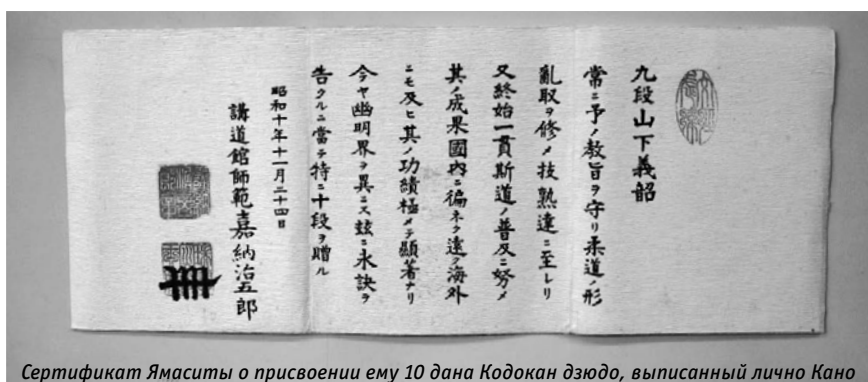 九段山下義韶
常ニ予ノ敎旨ヲ守リ柔道ノ形
亂取ヲ修メ技熟達ニ至レリ
又終始一貫斯道ノ普及ニ努メ
其ノ成果國內ニ徧ネク遠ク海外
ニモ及ヒ其ノ功績極メテ顯著ナリ
今ヤ幽明界ヲ異ニス玆ニ永訣ヲ
告クルニ當テ特ニ十段ヲ贈ル
昭和十年十一月二十四日
講道館師範嘉納治五郎
Сертификат Ямаситы о присвоении ему 10 дана Кодокан дзюдо, выписанный лично Кано